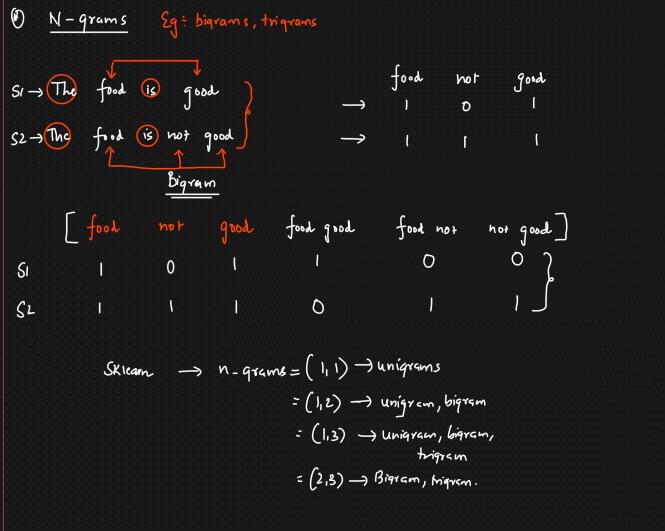 N-grams Eg: bigrams, trigrams
S1 → The food is good
S2 → The food is not good
Bigram
food not good
→ 1 0 1
→ 1 1 1
[ food not good food good food not not good ]
S1 1 0 1 1 0 0
S2 1 1 1 0 1 1
Sklearn → n-grams = (1,1) → unigrams
= (1,2) → unigram, bigram
= (1,3) → unigram, bigram,
trigram
= (2,3) → Bigram, trigram.